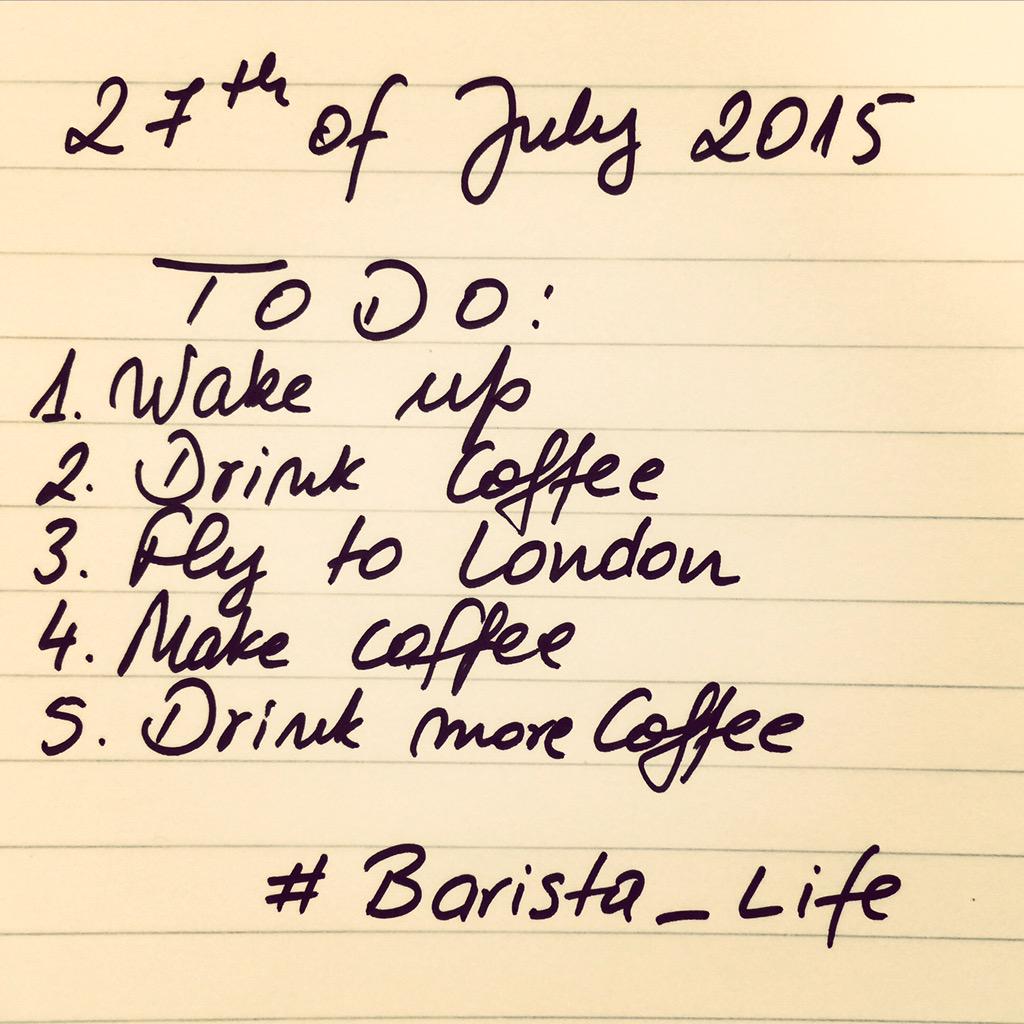 27th of July 2015
TO DO:
1. Wake up
2. Drink Coffee
3. Fly to London
4. Make coffee
5. Drink more Coffee
# Barista_Life